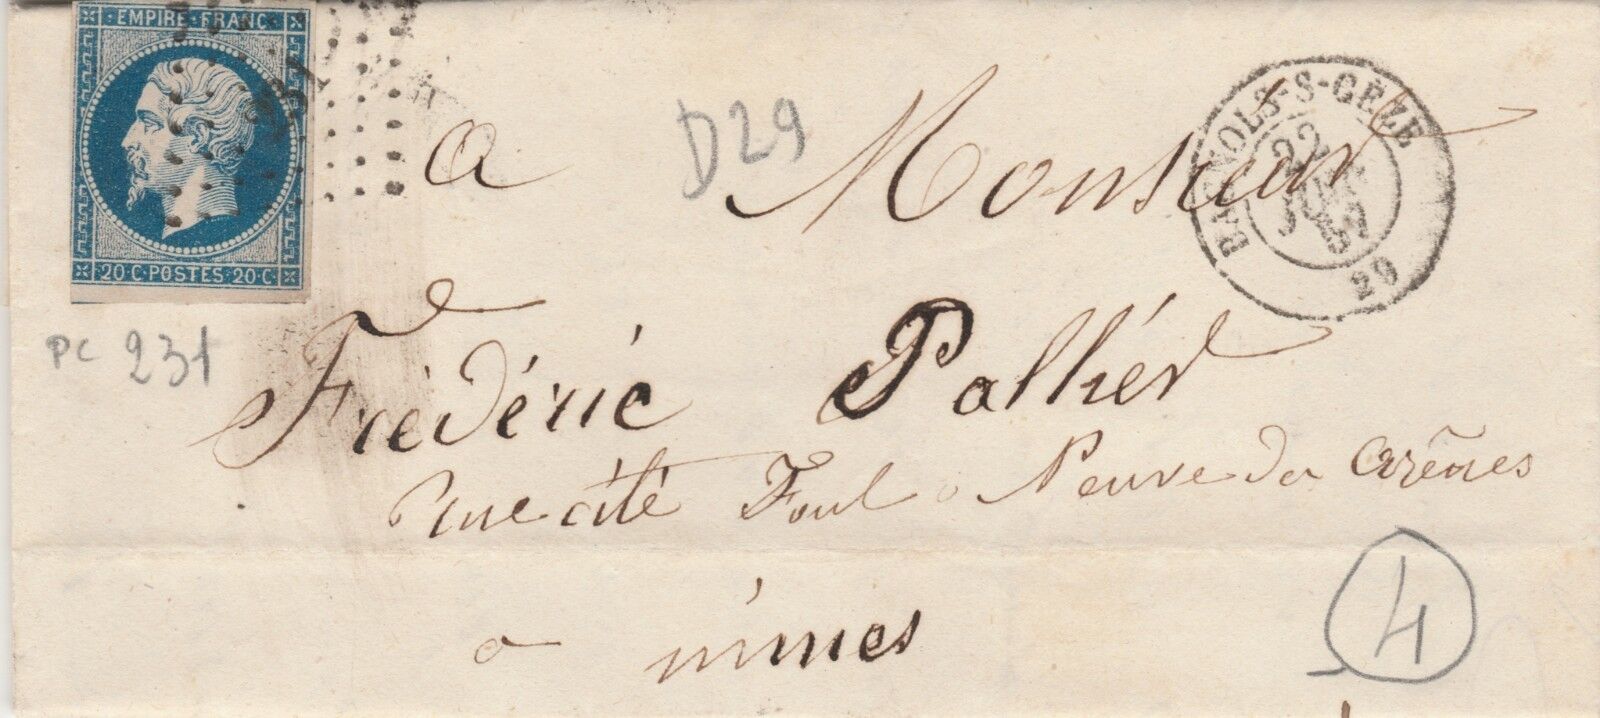 EMPIRE · FRANC
20·C·POSTES·20·C
PC 231
D29
BAGNOLS-S-CÈZE
22
JUIN
57
29
a Monsieur
Frédéric Palhér
Rue cité Foul Neuve des arènes
a nimes
4